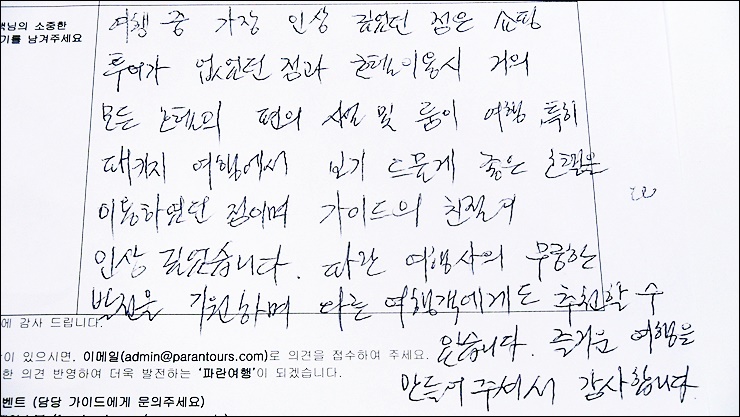 객님의 소중한
기를 남겨주세요
여행 중 가장 인상 깊었던 점은 쇼핑
투어가 없었던 점과 호텔이용시 거의
모든 호텔의 편의 시설 및 룸이 여행 특히
패키지 여행에서 보기 드물게 좋은 호텔을
이용하였던 점이며 가이드의 친절이
인상 깊었습니다. 파란 여행사의 무궁한
발전을 기원하며 다른 여행객에게도 추천할 수
있습니다. 즐거운 여행을
만들어주셔서 감사합니다.
에 감사 드립니다.
이 있으시면, 이메일(admin@parantours.com)로 의견을 접수하여 주세요.
한 의견 반영하여 더욱 발전하는 '파란여행'이 되겠습니다.
벤트 (담당 가이드에게 문의주세요)